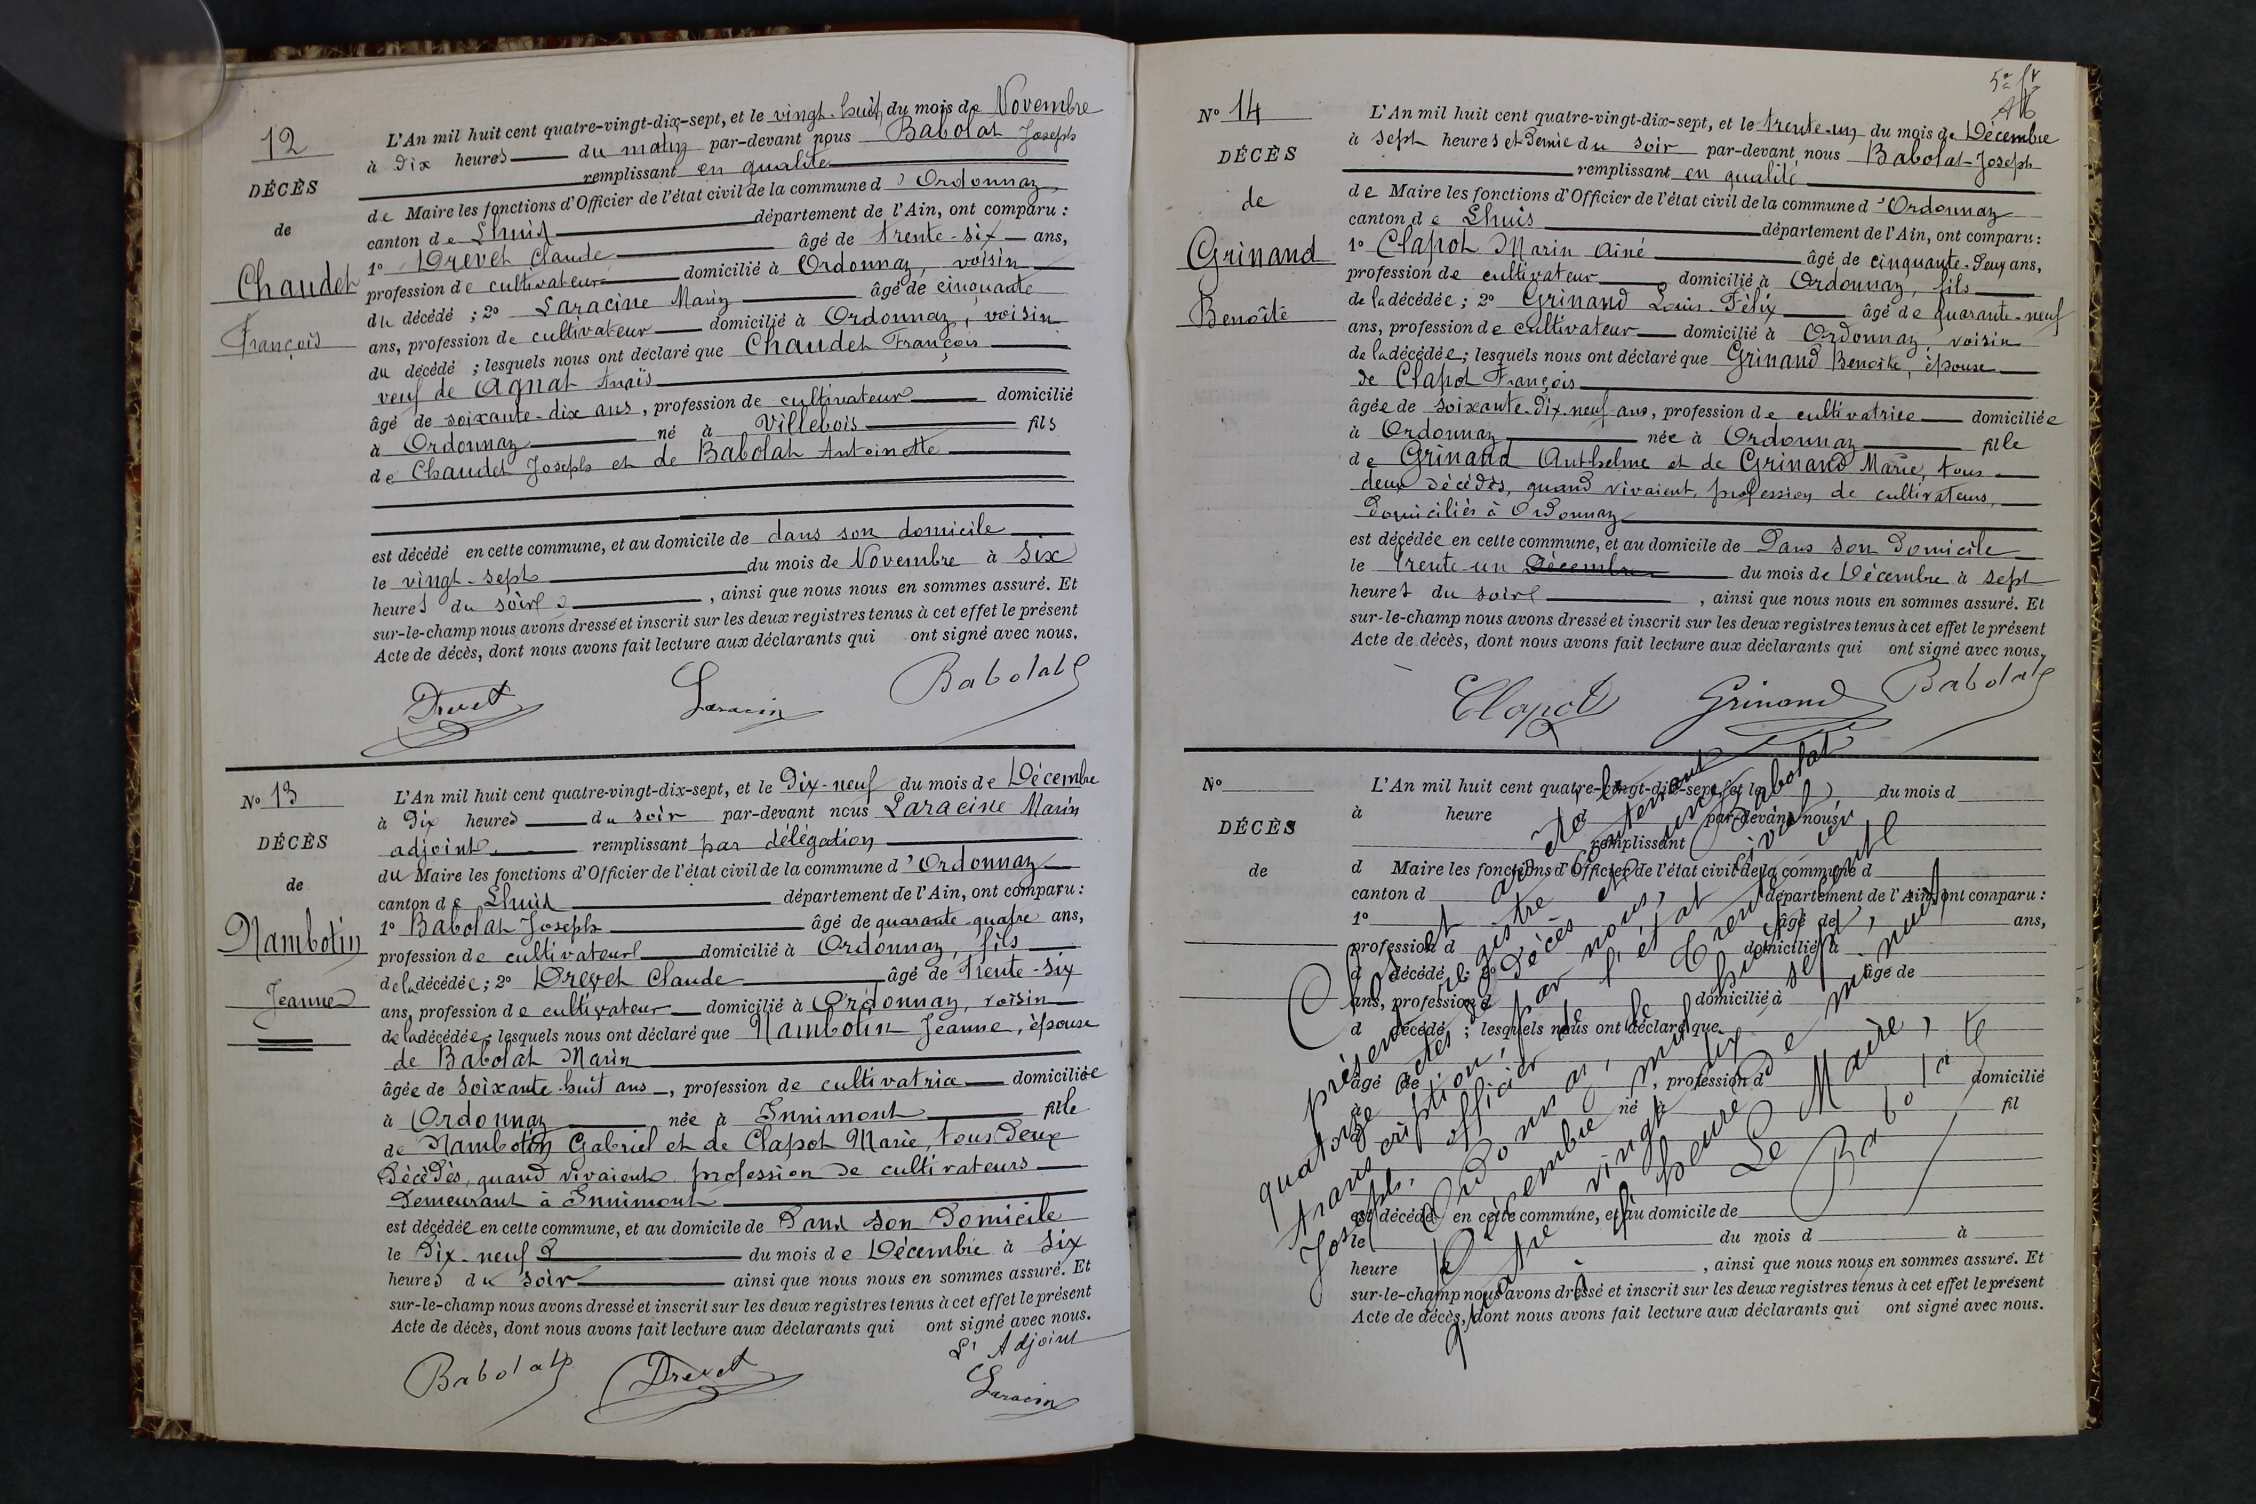 12
DÉCÈS
de
Chaudet
François
L'An mil huit cent quatre-vingt-dix-sept, et le vingt-huit du mois de Novembre
à dix heures du matin par-devant nous Babolat Joseph
remplissant en qualité
de Maire les fonctions d'Officier de l'état civil de la commune d'Ordonnaz
canton de Lhuis département de l'Ain, ont comparu :
1° Drevet Claude âgé de trente-six ans,
profession de cultivateur domicilié à Ordonnaz, voisin
du décédé ; 2° Laracine Marin âgé de cinquante
ans, profession de cultivateur domicilié à Ordonnaz, voisin
du décédé ; lesquels nous ont déclaré que Chaudet François
veuf de Agnat Anaïs
âgé de soixante-dix ans, profession de cultivateur domicilié
à Ordonnaz né à Villebois fils
de Chaudet Joseph et de Babolat Antoinette
est décédé en cette commune, et au domicile de dans son domicile
le vingt-sept du mois de Novembre à six
heures du soir , ainsi que nous nous en sommes assuré. Et
sur-le-champ nous avons dressé et inscrit sur les deux registres tenus à cet effet le présent
Acte de décès, dont nous avons fait lecture aux déclarants qui ont signé avec nous.
Drevet Laracin Babolat
N° 13
DÉCÈS
de
Nambotin
Jeanne
L'An mil huit cent quatre-vingt-dix-sept, et le Dix-neuf du mois de Décembre
à Dix heures du soir par-devant nous Laracine Marin
adjoint remplissant par délégation
du Maire les fonctions d'Officier de l'état civil de la commune d'Ordonnaz
canton de Lhuis département de l'Ain, ont comparu :
1° Babolat Joseph âgé de quarante-quatre ans,
profession de cultivateur domicilié à Ordonnaz, fils
de la décédée ; 2° Drevet Claude âgé de trente-six
ans, profession de cultivateur domicilié à Ordonnaz, voisin
de la décédée ; lesquels nous ont déclaré que Nambotin Jeanne, épouse
de Babolat Marin
âgée de soixante-huit ans, profession de cultivatrice domiciliée
à Ordonnaz née à Innimont fille
de Nambotin Gabriel et de Clapot Marie, tous Deux
Décédés, quand vivaient profession de cultivateurs
Demeurant à Innimont
est décédée en cette commune, et au domicile de Dans son Domicile
le Dix-neuf du mois de Décembre à six
heures du soir ainsi que nous nous en sommes assuré. Et
sur-le-champ nous avons dressé et inscrit sur les deux registres tenus à cet effet le présent
Acte de décès, dont nous avons fait lecture aux déclarants qui ont signé avec nous.
L'Adjoint
Babolat Drevet Laracin
N° 14
DÉCÈS
de
Grinand
Benoîte
L'An mil huit cent quatre-vingt-dix-sept, et le trente-un du mois de Décembre
à sept heures et Demie du soir par-devant nous Babolat-Joseph
remplissant en qualité
de Maire les fonctions d'Officier de l'état civil de la commune d'Ordonnaz
canton de Lhuis département de l'Ain, ont comparu :
1° Clapot Marin Aîné âgé de cinquante-Deux ans,
profession de cultivateur domicilié à Ordonnaz, fils
de la décédée ; 2° Grinand Louis-Félix âgé de quarante-neuf
ans, profession de cultivateur domicilié à Ordonnaz, voisin
de la décédée ; lesquels nous ont déclaré que Grinand Benoîte, épouse
de Clapot François
âgée de soixante-Dix-neuf ans, profession de cultivatrice domiciliée
à Ordonnaz née à Ordonnaz fille
de Grinand Anthelme et de Grinand Marie, tous
deux Décédés, quand vivaient, profession de cultivateurs,
Domiciliés à Ordonnaz
est décédée en cette commune, et au domicile de Dans son Domicile
le trente-un Décembre du mois de Décembre à sept
heures du soir , ainsi que nous nous en sommes assuré. Et
sur-le-champ nous avons dressé et inscrit sur les deux registres tenus à cet effet le présent
Acte de décès, dont nous avons fait lecture aux déclarants qui ont signé avec nous.
Clapot Grinand Babolat
N°
DÉCÈS
de
L'An mil huit cent quatre-vingt-dix-sept, et le du mois d
à heure par-devant nous
remplissant
d Maire les fonctions d'Officier de l'état civil de la commune d
canton d département de l'Ain, ont comparu :
1° âgé de ans,
profession d domicilié à
d décédé ; 2° âgé de
ans, profession d domicilié à
d décédé ; lesquels nous ont déclaré que
âgé de , profession d domicilié
à né à fil
est décédé en cette commune, et au domicile de
le du mois d à
heure , ainsi que nous nous en sommes assuré. Et
sur-le-champ nous avons dressé et inscrit sur les deux registres tenus à cet effet le présent
Acte de décès, dont nous avons fait lecture aux déclarants qui ont signé avec nous.
Clos et arrêté, le
présent registre contenant
quatorze actes de Décès et une
transcription, par nous, Babolat
Joseph, officier de l'état civil
Ordonnaz, le trente un
Décembre mil huit cent
quatre vingt dix sept,
heure de minuit
Le Maire,
Babolat